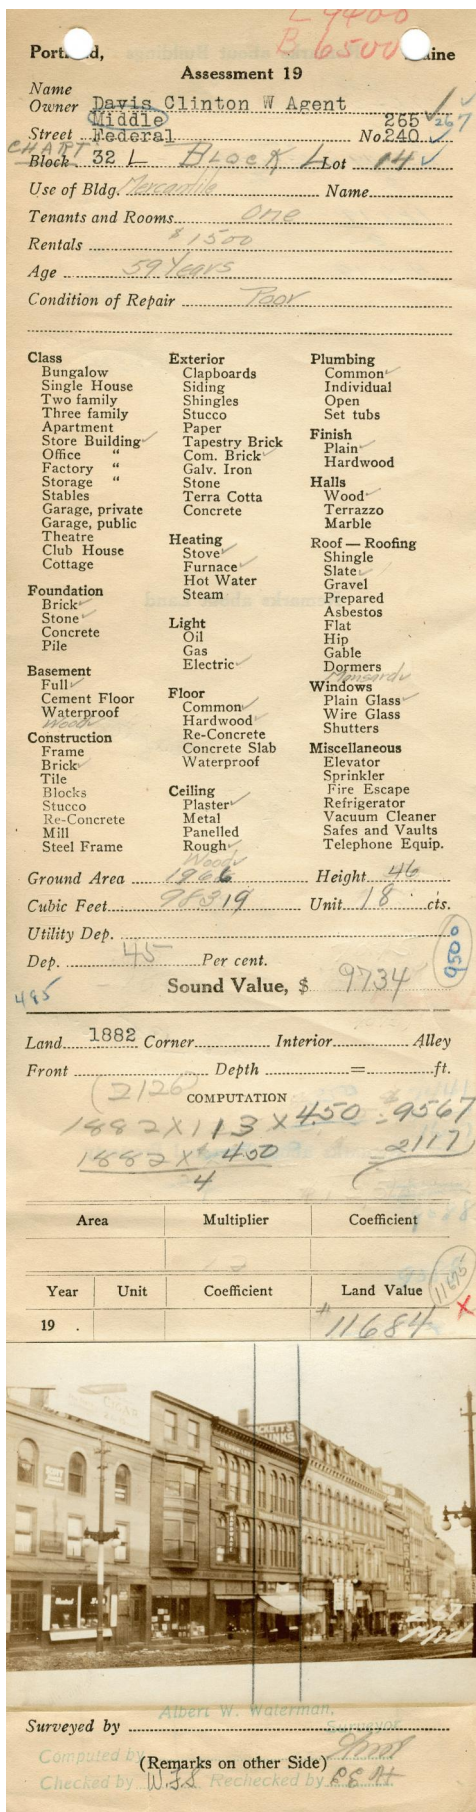 L 9400
B 6500
Portland, Maine
Assessment 19
Name
Owner Davis Clinton W Agent
Middle 265 267
Street Federal No. 240
CHART
Block 32 L BLOCK L Lot 14
Use of Bldg. Mercantile Name
Tenants and Rooms one
Rentals $1500
Age 59 Years
Condition of Repair Poor
Class
Bungalow
Single House
Two family
Three family
Apartment
Store Building ✓
Office "
Factory "
Storage "
Stables
Garage, private
Garage, public
Theatre
Club House
Cottage
Foundation
Brick ✓
Stone ✓
Concrete
Pile
Basement
Full ✓
Cement Floor
Waterproof
Wood ✓
Construction
Frame
Brick ✓
Tile
Blocks
Stucco
Re-Concrete
Mill
Steel Frame
Exterior
Clapboards
Siding
Shingles
Stucco
Paper
Tapestry Brick
Com. Brick ✓
Galv. Iron
Stone
Terra Cotta
Concrete
Heating
Stove ✓
Furnace ✓
Hot Water
Steam
Light
Oil
Gas
Electric ✓
Floor
Common ✓
Hardwood ✓
Re-Concrete
Concrete Slab
Waterproof
Ceiling
Plaster ✓
Metal
Panelled
Rough ✓
Wood ✓
Plumbing
Common ✓
Individual
Open
Set tubs
Finish
Plain ✓
Hardwood
Halls
Wood ✓
Terrazzo
Marble
Roof — Roofing
Shingle
Slate ✓
Gravel
Prepared
Asbestos
Flat
Hip
Gable
Dormers
Mansard ✓
Windows
Plain Glass ✓
Wire Glass
Shutters
Miscellaneous
Elevator
Sprinkler
Fire Escape
Refrigerator
Vacuum Cleaner
Safes and Vaults
Telephone Equip.
Ground Area 1966 Height 46
Cubic Feet 98319 Unit 18 cts.
Utility Dep.
Dep. 45 Per cent. 9500
Sound Value, $ 9734
495
Land 1882 Corner Interior Alley
Front Depth = ft.
(2126) COMPUTATION
1882 X 113 X 4.50 = 9567
1882 X $ 450 2117
4
Area Multiplier Coefficient
Year Unit Coefficient Land Value 11675
19 . $ 11684 X
267
Midd
Albert W. Waterman,
Surveyed by Surveyor
Computed by
(Remarks on other Side)
Checked by W.F.S. Rechecked by E.E.H.